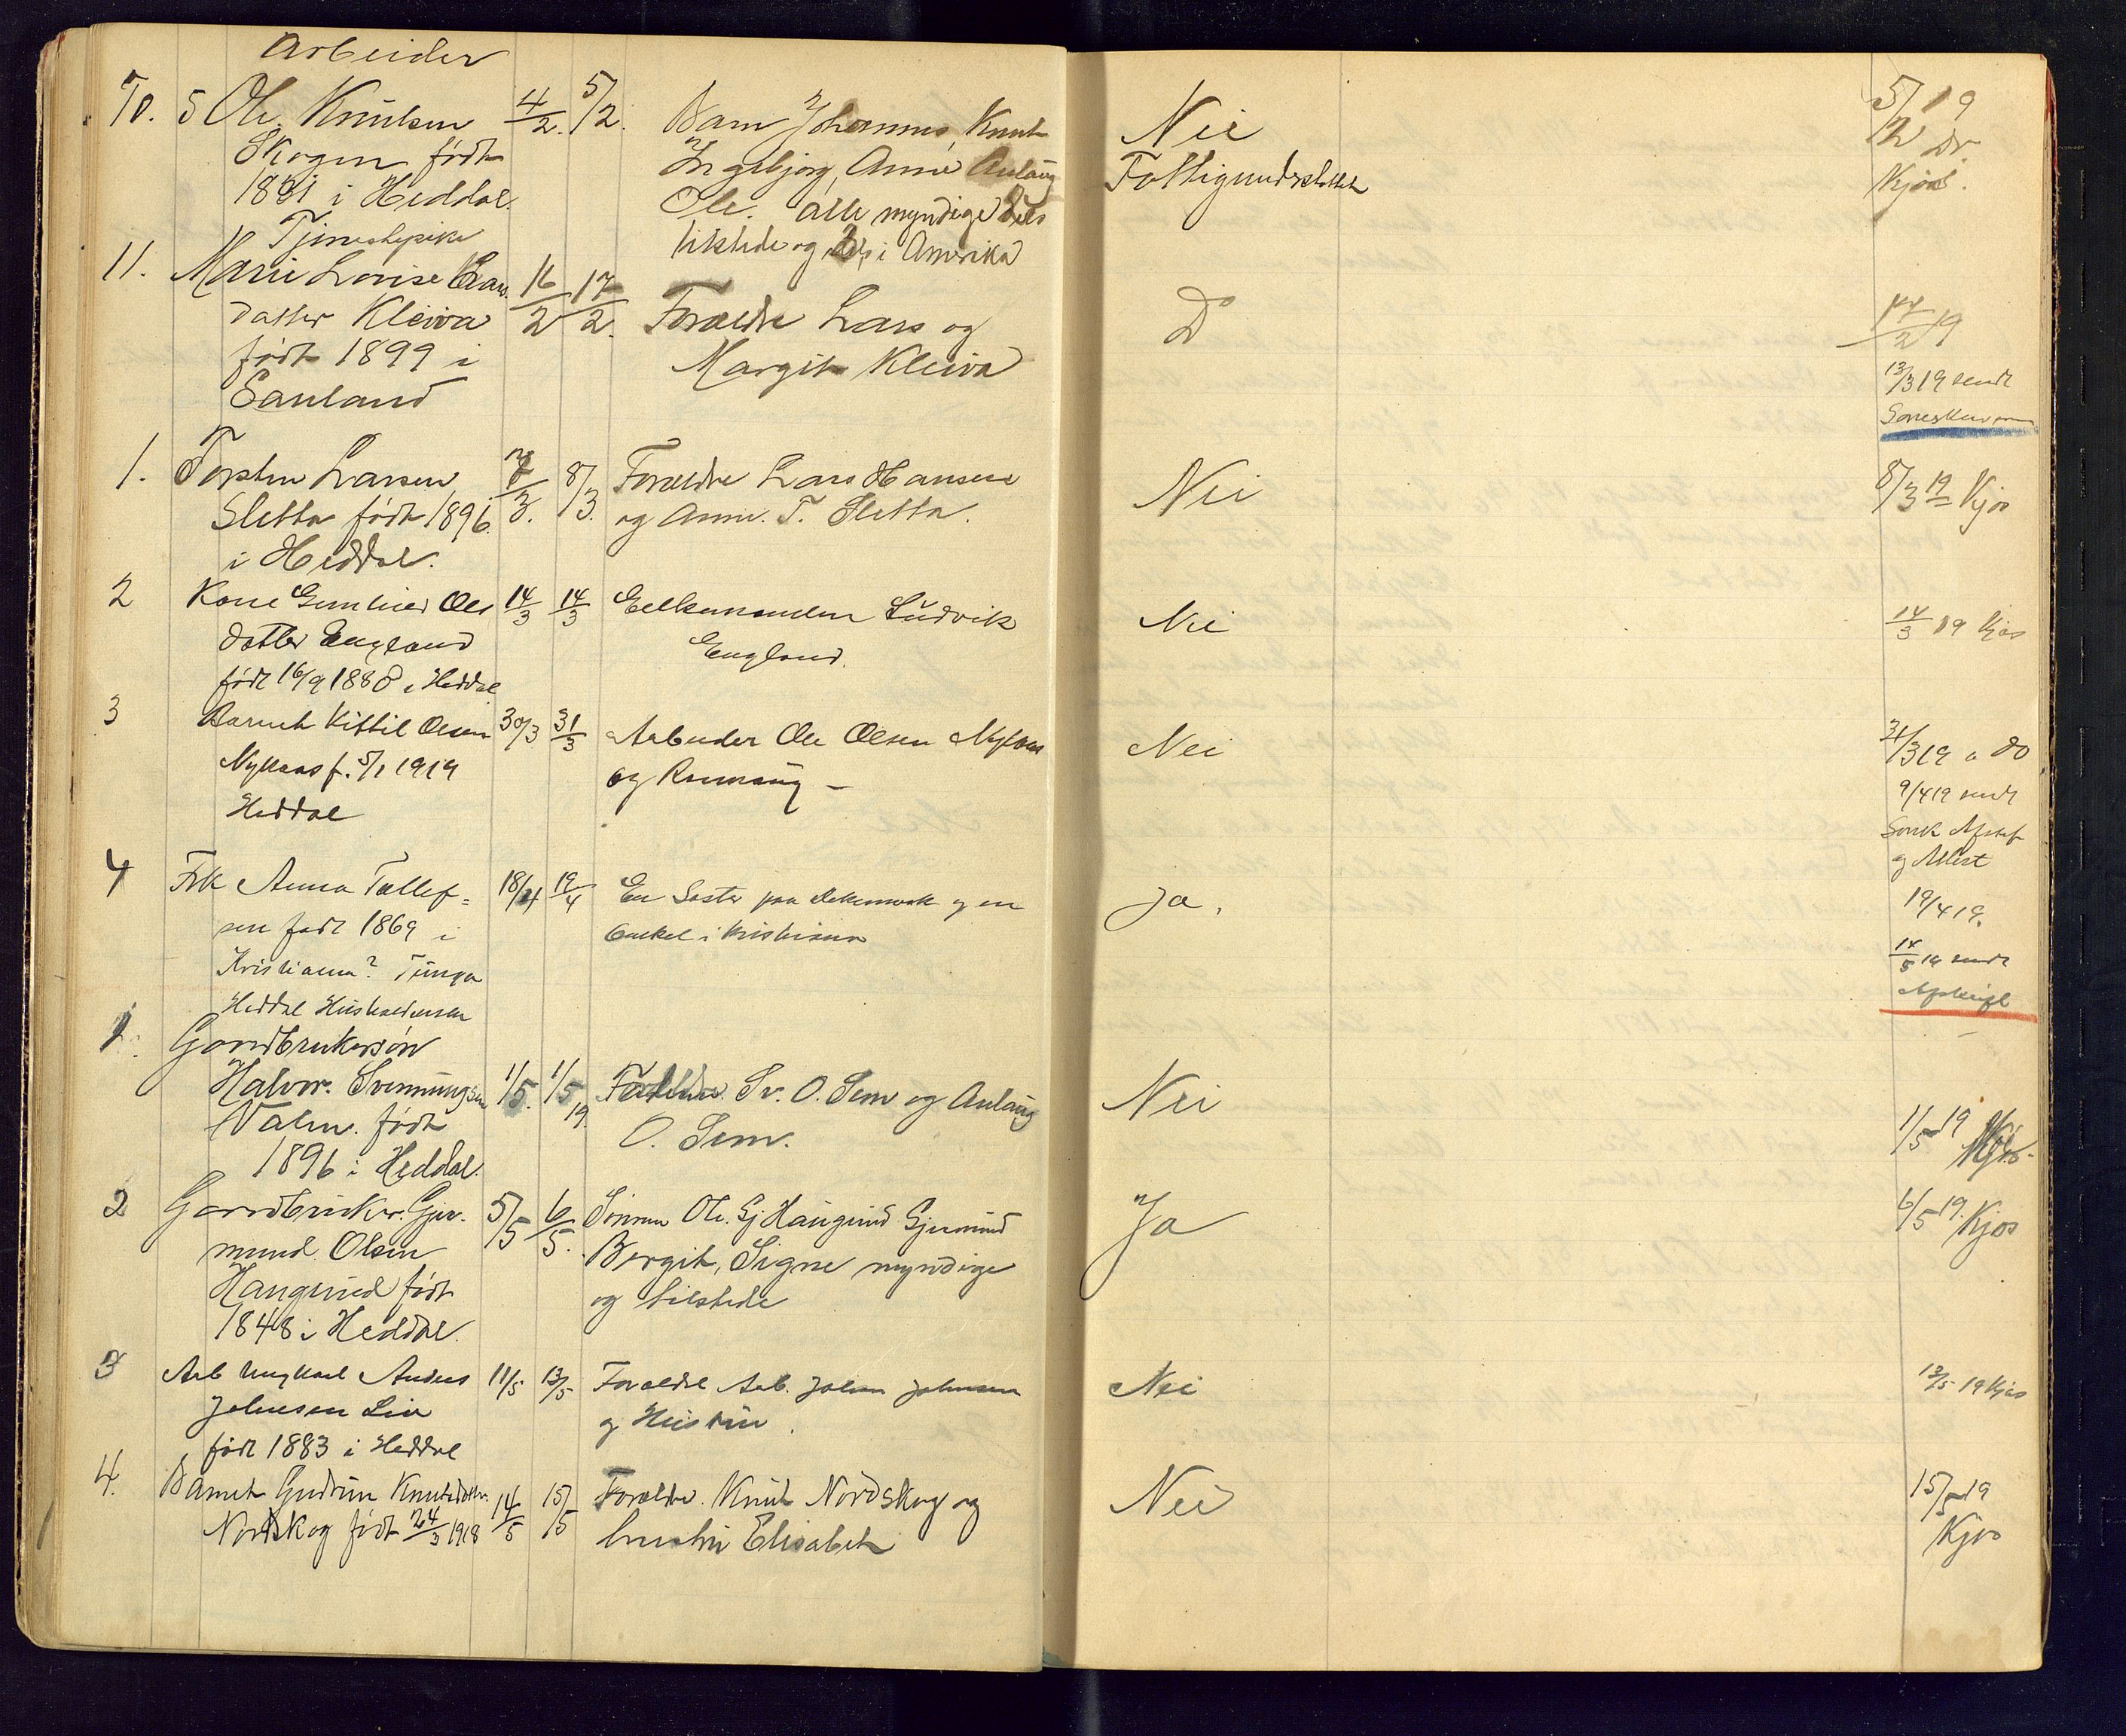 Arbeider
10. 5 Ole Knutsen 4/2. 5/2. Barn Johannes, Knut Nei 5/2 19
Skogen født Ingebjørg, Anne Aslaug Fattigunderstøttet Dr.
18 1 i Heddal. Ole. alle myndige dels Kjos.
Tjenestepike tilstede og dels i Amerika
11. Marie Lovise Lars 16/2 17/2.
datter Kleiva Forældre Lars og Do 17/2 19
født 1899 i Margit Kleiva 13/3 19 sendt
Sauland Soreskriveren
1. Torsten Larsen 7/3. 8/3. Forældre Lars Hansen Nei 8/3 19 Kjos
Sletta født 1896 og Anne. T. Sletta.
i Heddal.
2 Kone Gunhild Ols 14/3 14/3 Ektemanden Ludvik Nei 14/3 19 Kjos
datter England England.
født 16/9 1880 i Heddal
3 Barnet Kittil Olsen 30/3 31/3 Arbeider Ole Olsen Nykaas Nei 31/3 19 do
Nykaas f. 5/1 1919 og Rannaug — 9/4 19 sendt
Heddal Sorsk Afskrift
og Attest
4 Frk Anna Tollef= 18/4 19/4 En Søster paa og en Ja. 19/4 19.
sen født 1869 i Onkel i Kristiania 14/5 19 sendt
Kristiania? Tinga Afskrift
Heddal Husholderske
1. Gardbrukersøn
Halvor. Svenningsen 1/5. 1/5 19. Forældre. Sv. O. Sem og Aslaug Nei 1/5 19 Kjos.
Valen. født O. Sem.
1896 i Heddal.
2 Gardbruker. Gjer- 5/5 6/5. Sønnen Ole. Gj Haugrud Gjermund Ja 6/5 19. Kjos
mund Olsen Bergit, Signe myndige
Haugrud født og tilstede
1848 i Heddal.
3 Arb Ungkarl Anders 11/5 13/5 Forældre Arb. Johan Johnsen Nei 13/5 19 Kjos
Johnsen Lia og Hustru.
født 1883 i Heddal
4. Barnet Gudrun Knutsdatter 14/5 15/5 Forældre. Knut Nordskog og Nei 15/5 19
Nordskog født 24/3 1918 hustru Elisabet Kjos